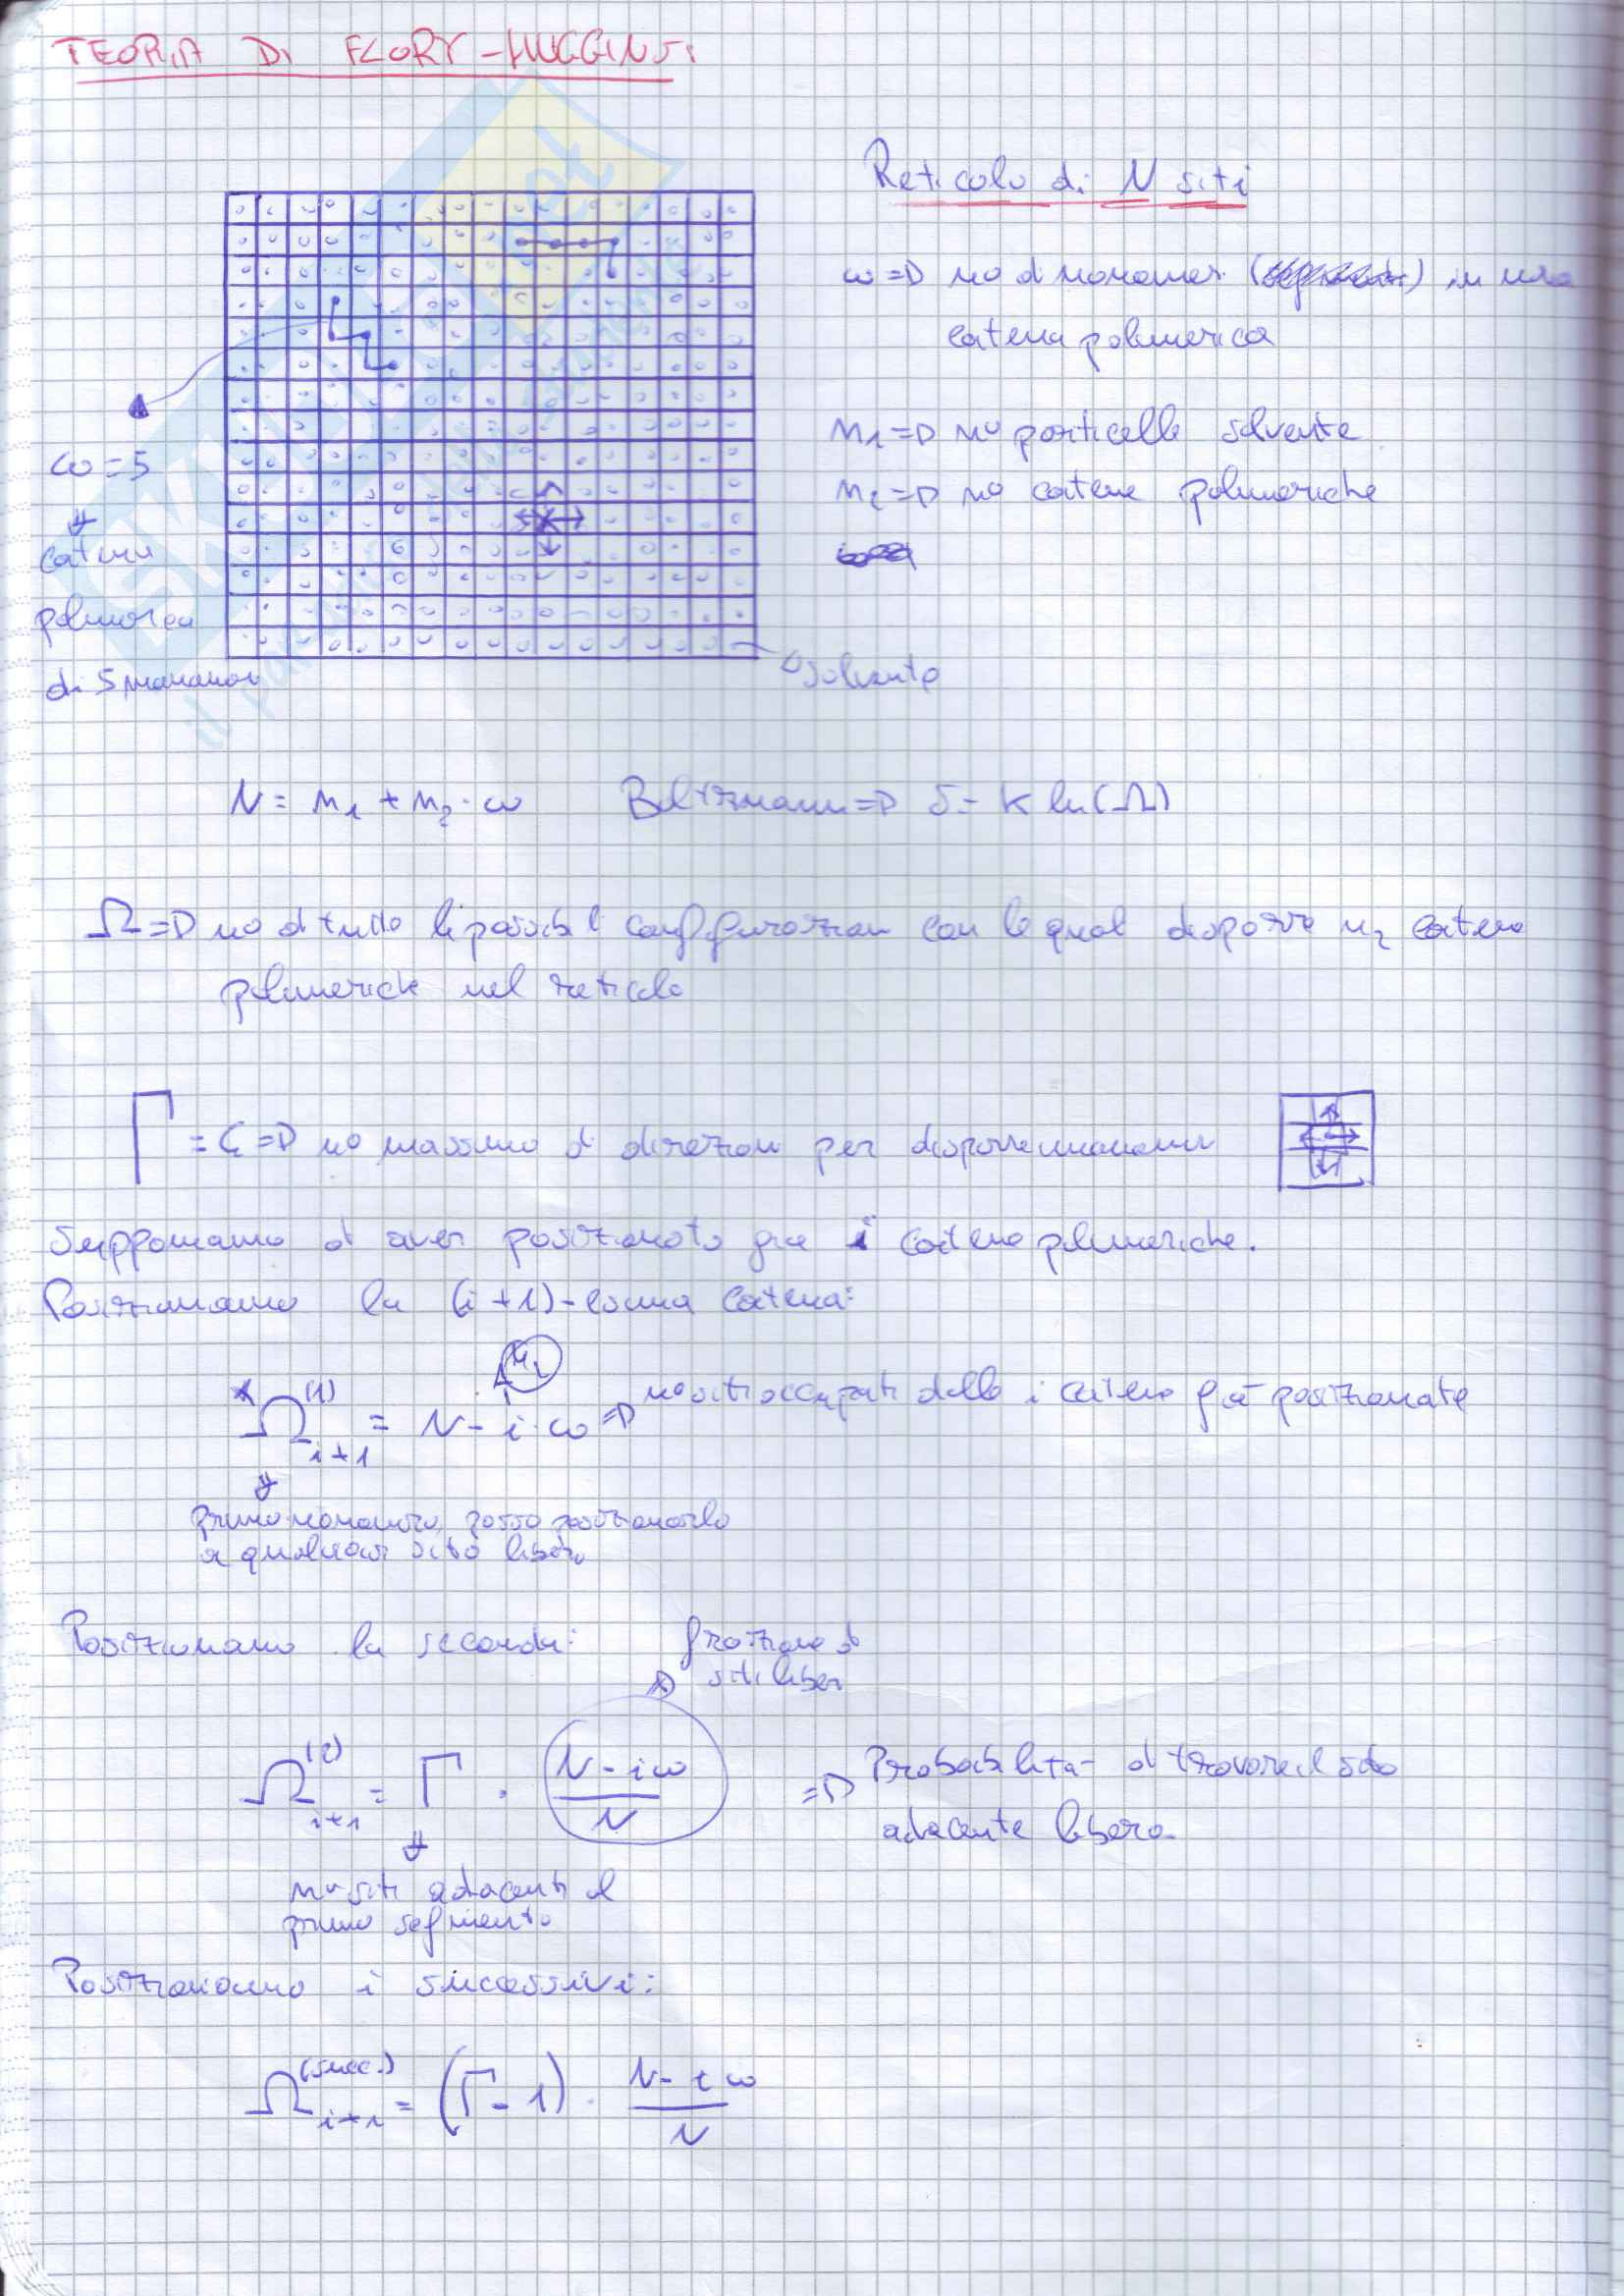 TEORIA DI FLORY-HUGGINS
Reticolo di N siti
ω => no di monomeri in una
catena polimerica
n1 => no particelle solvente
n2 => no catene polimeriche
ω = 5
catena
polimerica
di 5 monomeri
solvente
N = n1 + n2 · ω Boltzmann => S = K ln(Ω)
Ω => no di tutte le possibili configurazioni con le quali disporre n2 catene
polimeriche nel reticolo
Γ = => no massimo di direzioni per disporre monomeri
Supponiamo di aver posizionato già i catene polimeriche.
Posizioniamo la (i+1)-esima catena:
Ω(1) i+1 = N - i · ω => no siti occupati dalle i catene già posizionate
primo monomero, posso posizionarlo
a qualsiasi sito libero
Posizioniamo la seconda:
frazione di
siti liberi
Ω(2) i+1 = Γ · (N - iω)/N => Probabilità di trovare il sito
adiacente libero
no siti adiacenti al
primo segmento
Posizioniamo i successivi:
Ω(succ.) i+1 = (Γ - 1) · (N - iω)/N